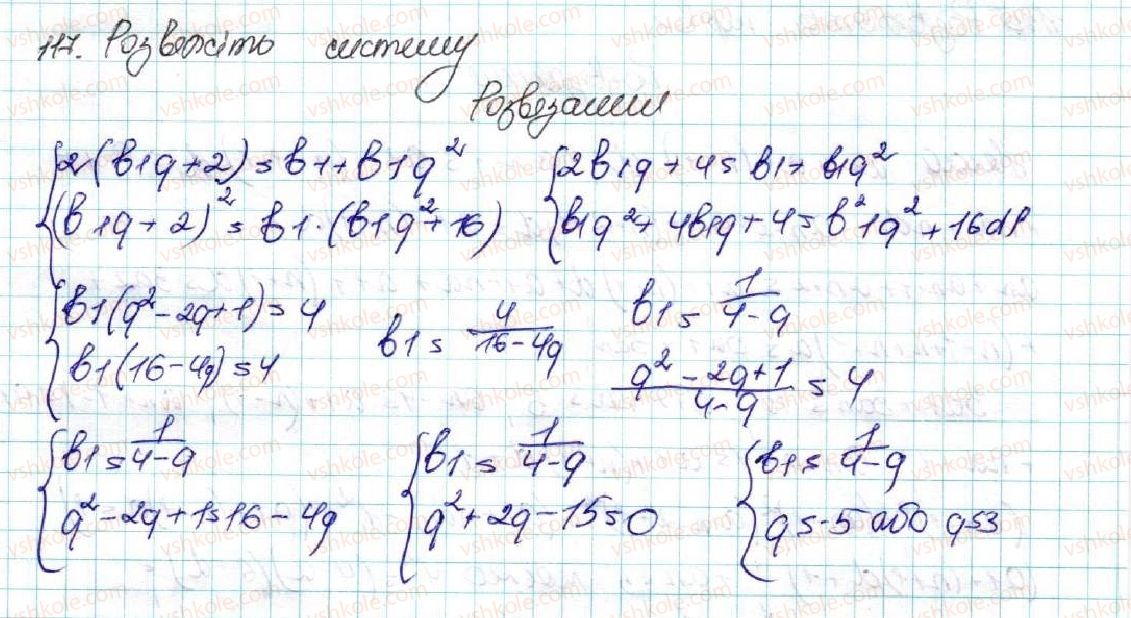 117. Розвяжіть систему
Розвязання
{2(b1q+2)=b1+b1q²
(b1q+2)²=b1·(b1q²+16)
{2b1q+4=b1+b1q²
b1q²+4b1q+4=b²1q²+16b1
{b1(q²-2q+1)=4
b1(16-4q)=4
b1=4/(16-4q)
b1=1/(4-q)
(q²-2q+1)/(4-q)=4
{b1=1/(4-q)
q²-2q+1=16-4q
{b1=1/(4-q)
q²+2q-15=0
{b1=1/(4-q)
q=-5 або q=3